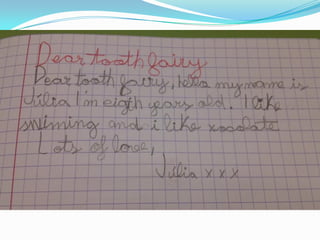 Dear tooth fairy
Dear tooth fairy, hello my name is
Júlia I'm eigth years old. I like
swiming and i like xocolate
Lots of love,
Júlia x x x